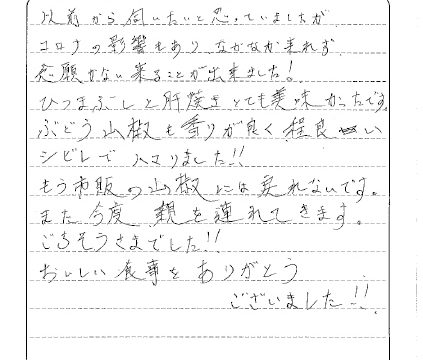 以前から伺いたいと思っていましたが
コロナの影響もありなかなか来れず、
念願かない来ることが出来ました!
ひつまぶしと肝焼きとても美味かったです。
ぶどう山椒も香りが良く程良い
シビレでハマりました!!
もう市販の山椒には戻れないです。
また今度 親を連れてきます。
ごちそうさまでした!!
おいしい食事をありがとう
ございました!!